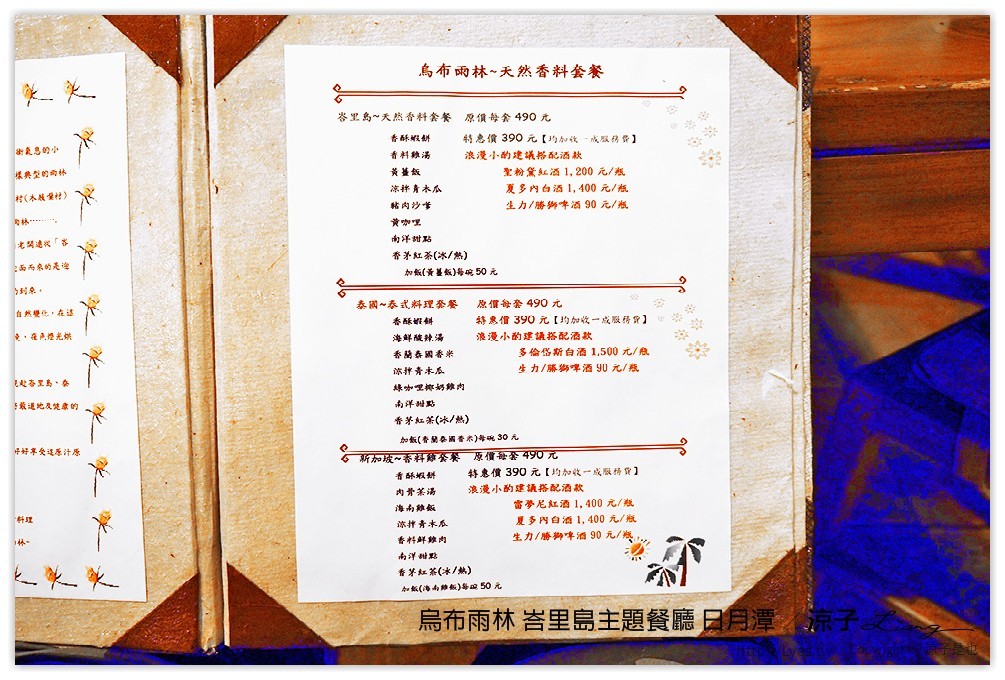 術氣息的小
樣典型的雨林
村(木玻璨村)
雨林………。
老闆遠從「峇
迎面而來的是迎
的到來。
自然變化，在這
免，在魚燈光烘
見赴峇里島、泰
好最道地及健康的
好好享受這原汁原
料理
林~
烏布雨林~天然香料套餐
峇里島~天然香料套餐 原價每套 490 元
香酥蝦餅 特惠價 390 元【均加收一成服務費】
香料雞湯 浪漫小酌建議搭配酒款
黃薑飯 聖粉黛紅酒 1,200 元/瓶
涼拌青木瓜 夏多內白酒 1,400 元/瓶
豬肉沙嗲 生力/勝獅啤酒 90 元/瓶
黃咖哩
南洋甜點
香茅紅茶(冰/熱)
加飯(黃薑飯)每碗 50 元
泰國~泰式料理套餐 原價每套 490 元
香酥蝦餅 特惠價 390 元【均加收一成服務費】
海鮮酸辣湯 浪漫小酌建議搭配酒款
香蘭泰國香米 多倫岱斯白酒 1,500 元/瓶
涼拌青木瓜 生力/勝獅啤酒 90 元/瓶
綠咖哩椰奶雞肉
南洋甜點
香茅紅茶(冰/熱)
加飯(香蘭泰國香米)每碗 30 元
新加坡~香料雞套餐 原價每套 490 元
香酥蝦餅 特惠價 390 元【均加收一成服務費】
肉骨茶湯 浪漫小酌建議搭配酒款
海南雞飯 雷夢尼紅酒 1,400 元/瓶
涼拌青木瓜 夏多內白酒 1,400 元/瓶
香料鮮雞肉 生力/勝獅啤酒 90 元/瓶
南洋甜點
香茅紅茶(冰/熱)
加飯(海南雞飯)每碗 50 元
烏布雨林 峇里島主題餐廳 日月潭 / 涼子 Ling